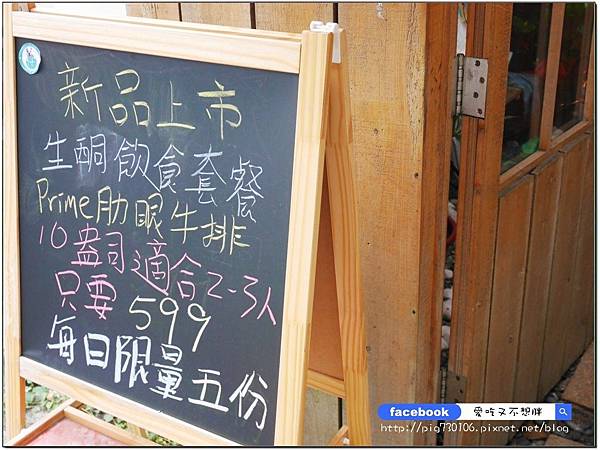 新品上市
生酮飲食套餐
Prime肋眼牛排
10盎司適合2-3人
只要599
每日限量五份
facebook 愛吃又不想胖
http://pig730106.pixnet.net/blog